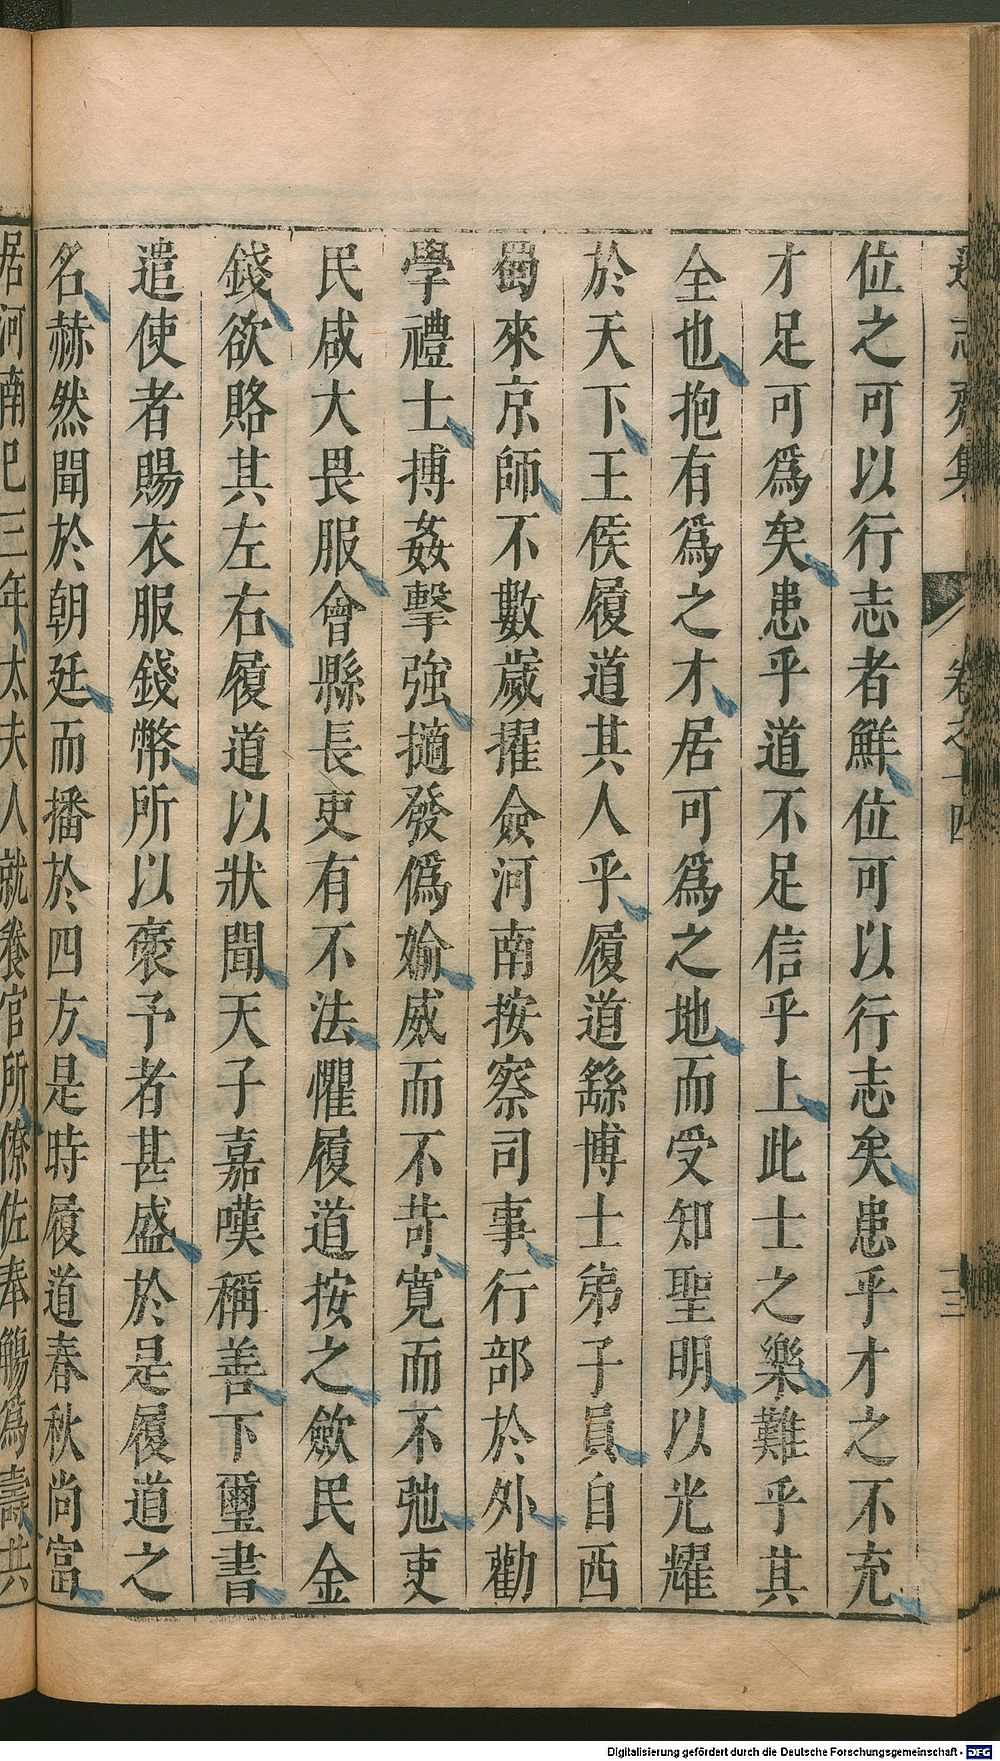 遜志齋集 卷之十四 十三
位之可以行志者鮮位可以行志矣患乎才之不充
才足可爲矣患乎道不足信乎上此士之樂難乎其
全也抱有爲之才居可爲之地而受知聖明以光耀
於天下王侯履道其人乎履道繇博士弟子員自西
蜀來京師不數歲擢僉河南按察司事行部於外勸
學禮士搏姦擊強擿發僞媮威而不苛寛而不弛吏
民咸大畏服會縣長吏有不法懼履道按之歛民金
錢欲賂其左右履道以狀聞天子嘉嘆稱善下璽書
遣使者賜衣服錢幣所以褒予者甚盛於是履道之
名赫然聞於朝廷而播於四方是時履道春秋尚富
居河南巳三年太夫人就養官所僚佐奉觴爲壽共
Digitalisierung gefördert durch die Deutsche Forschungsgemeinschaft - DFG